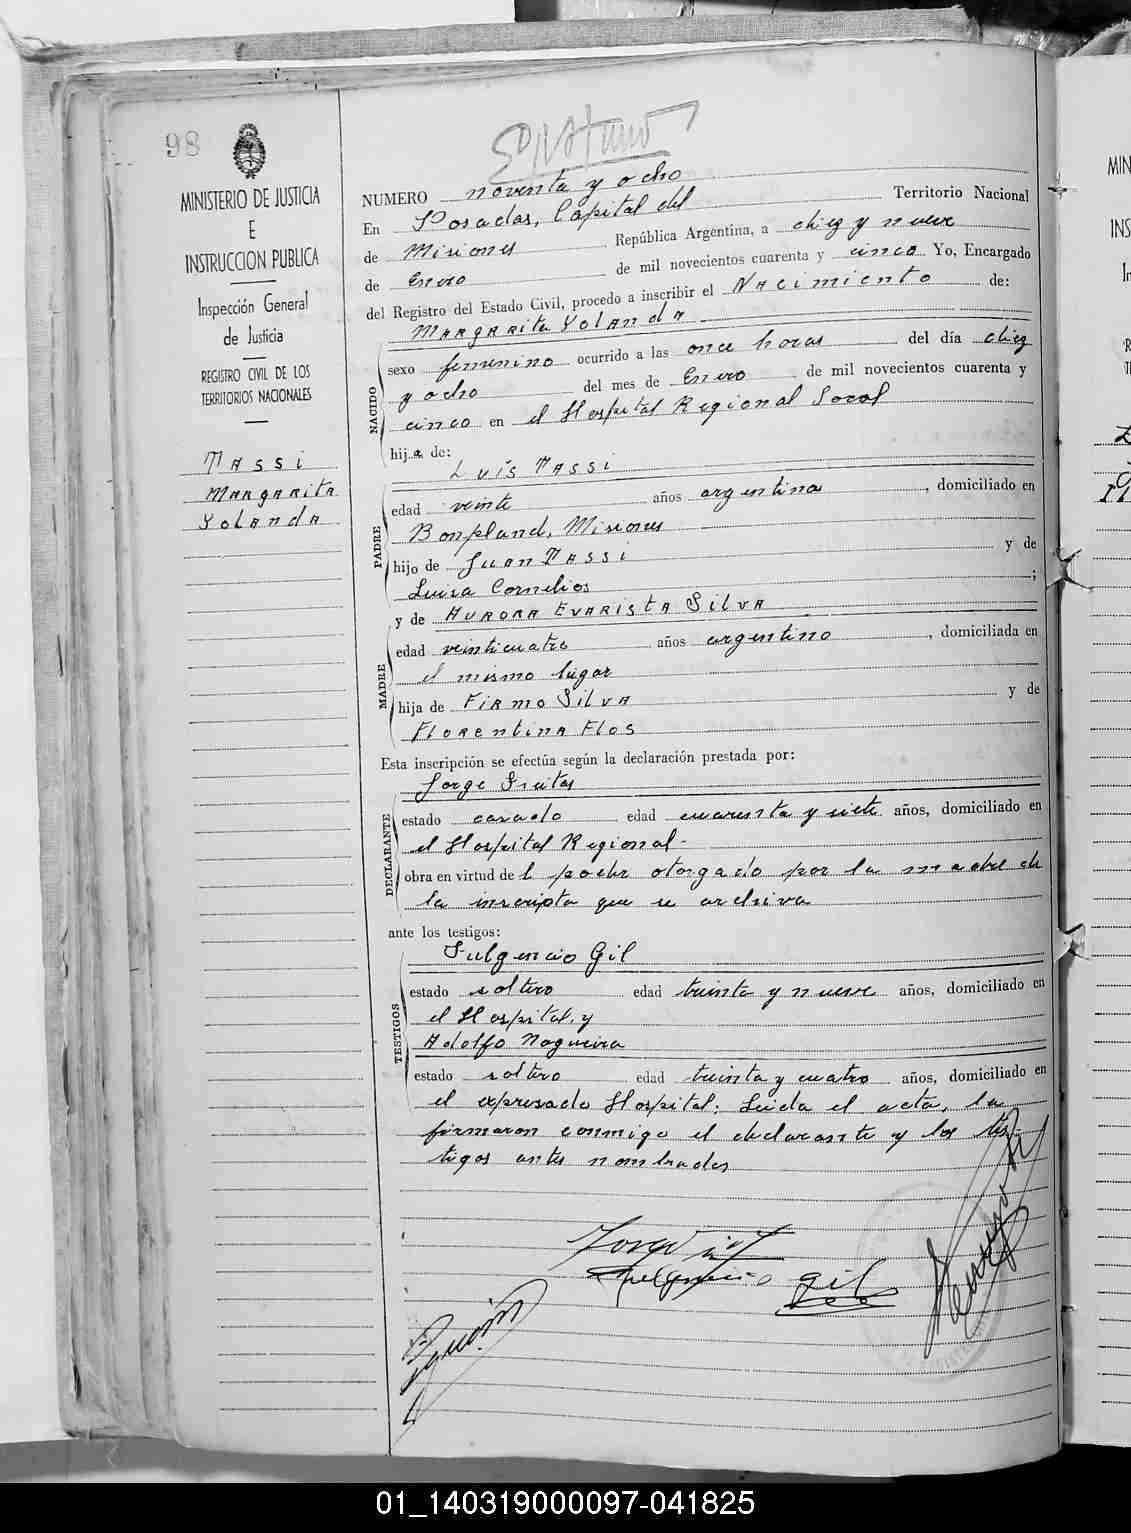 98
MINISTERIO DE JUSTICIA
E
INSTRUCCION PUBLICA
Inspección General
de Justicia
REGISTRO CIVIL DE LOS
TERRITORIOS NACIONALES
Massi
Margarita
Yolanda
NUMERO noventa y ocho
En Posadas, Capital del Territorio Nacional
de Misiones República Argentina, a diez y nueve
de Enero de mil novecientos cuarenta y cinco Yo, Encargado
del Registro del Estado Civil, procedo a inscribir el Nacimiento de:
NACIDO
Margarita Yolanda
sexo femenino ocurrido a las once horas del día diez
y ocho del mes de Enero de mil novecientos cuarenta y
cinco en el Hospital Regional Local
hija de:
PADRE
Luís Massi
edad veinte años argentino, domiciliado en
Bonpland, Misiones
hijo de Juan Massi y de
Luisa Cornelios ;
y de Aurora Evarista Silva
MADRE
edad veinticuatro años argentino, domiciliada en
el mismo lugar
hija de Firmo Silva y de
Florentina Flos
Esta inscripción se efectúa según la declaración prestada por:
DECLARANTE
Jorge
estado casado edad cuarenta y siete años, domiciliado en
el Hospital Regional-
obra en virtud del poder otorgado por la madre de
la inscripta que se archiva
ante los testigos:
TESTIGOS
Fulgencio Gil
estado soltero edad treinta y nueve años, domiciliado en
el Hospital, y
Adolfo Nogueira
estado soltero edad treinta y cuatro años, domiciliado en
el expresado Hospital; Leída el acta, la
firmaron conmigo el declarante y los tes-
tigos antes nombrados
Fulgencio Gil
01_140319000097-041825